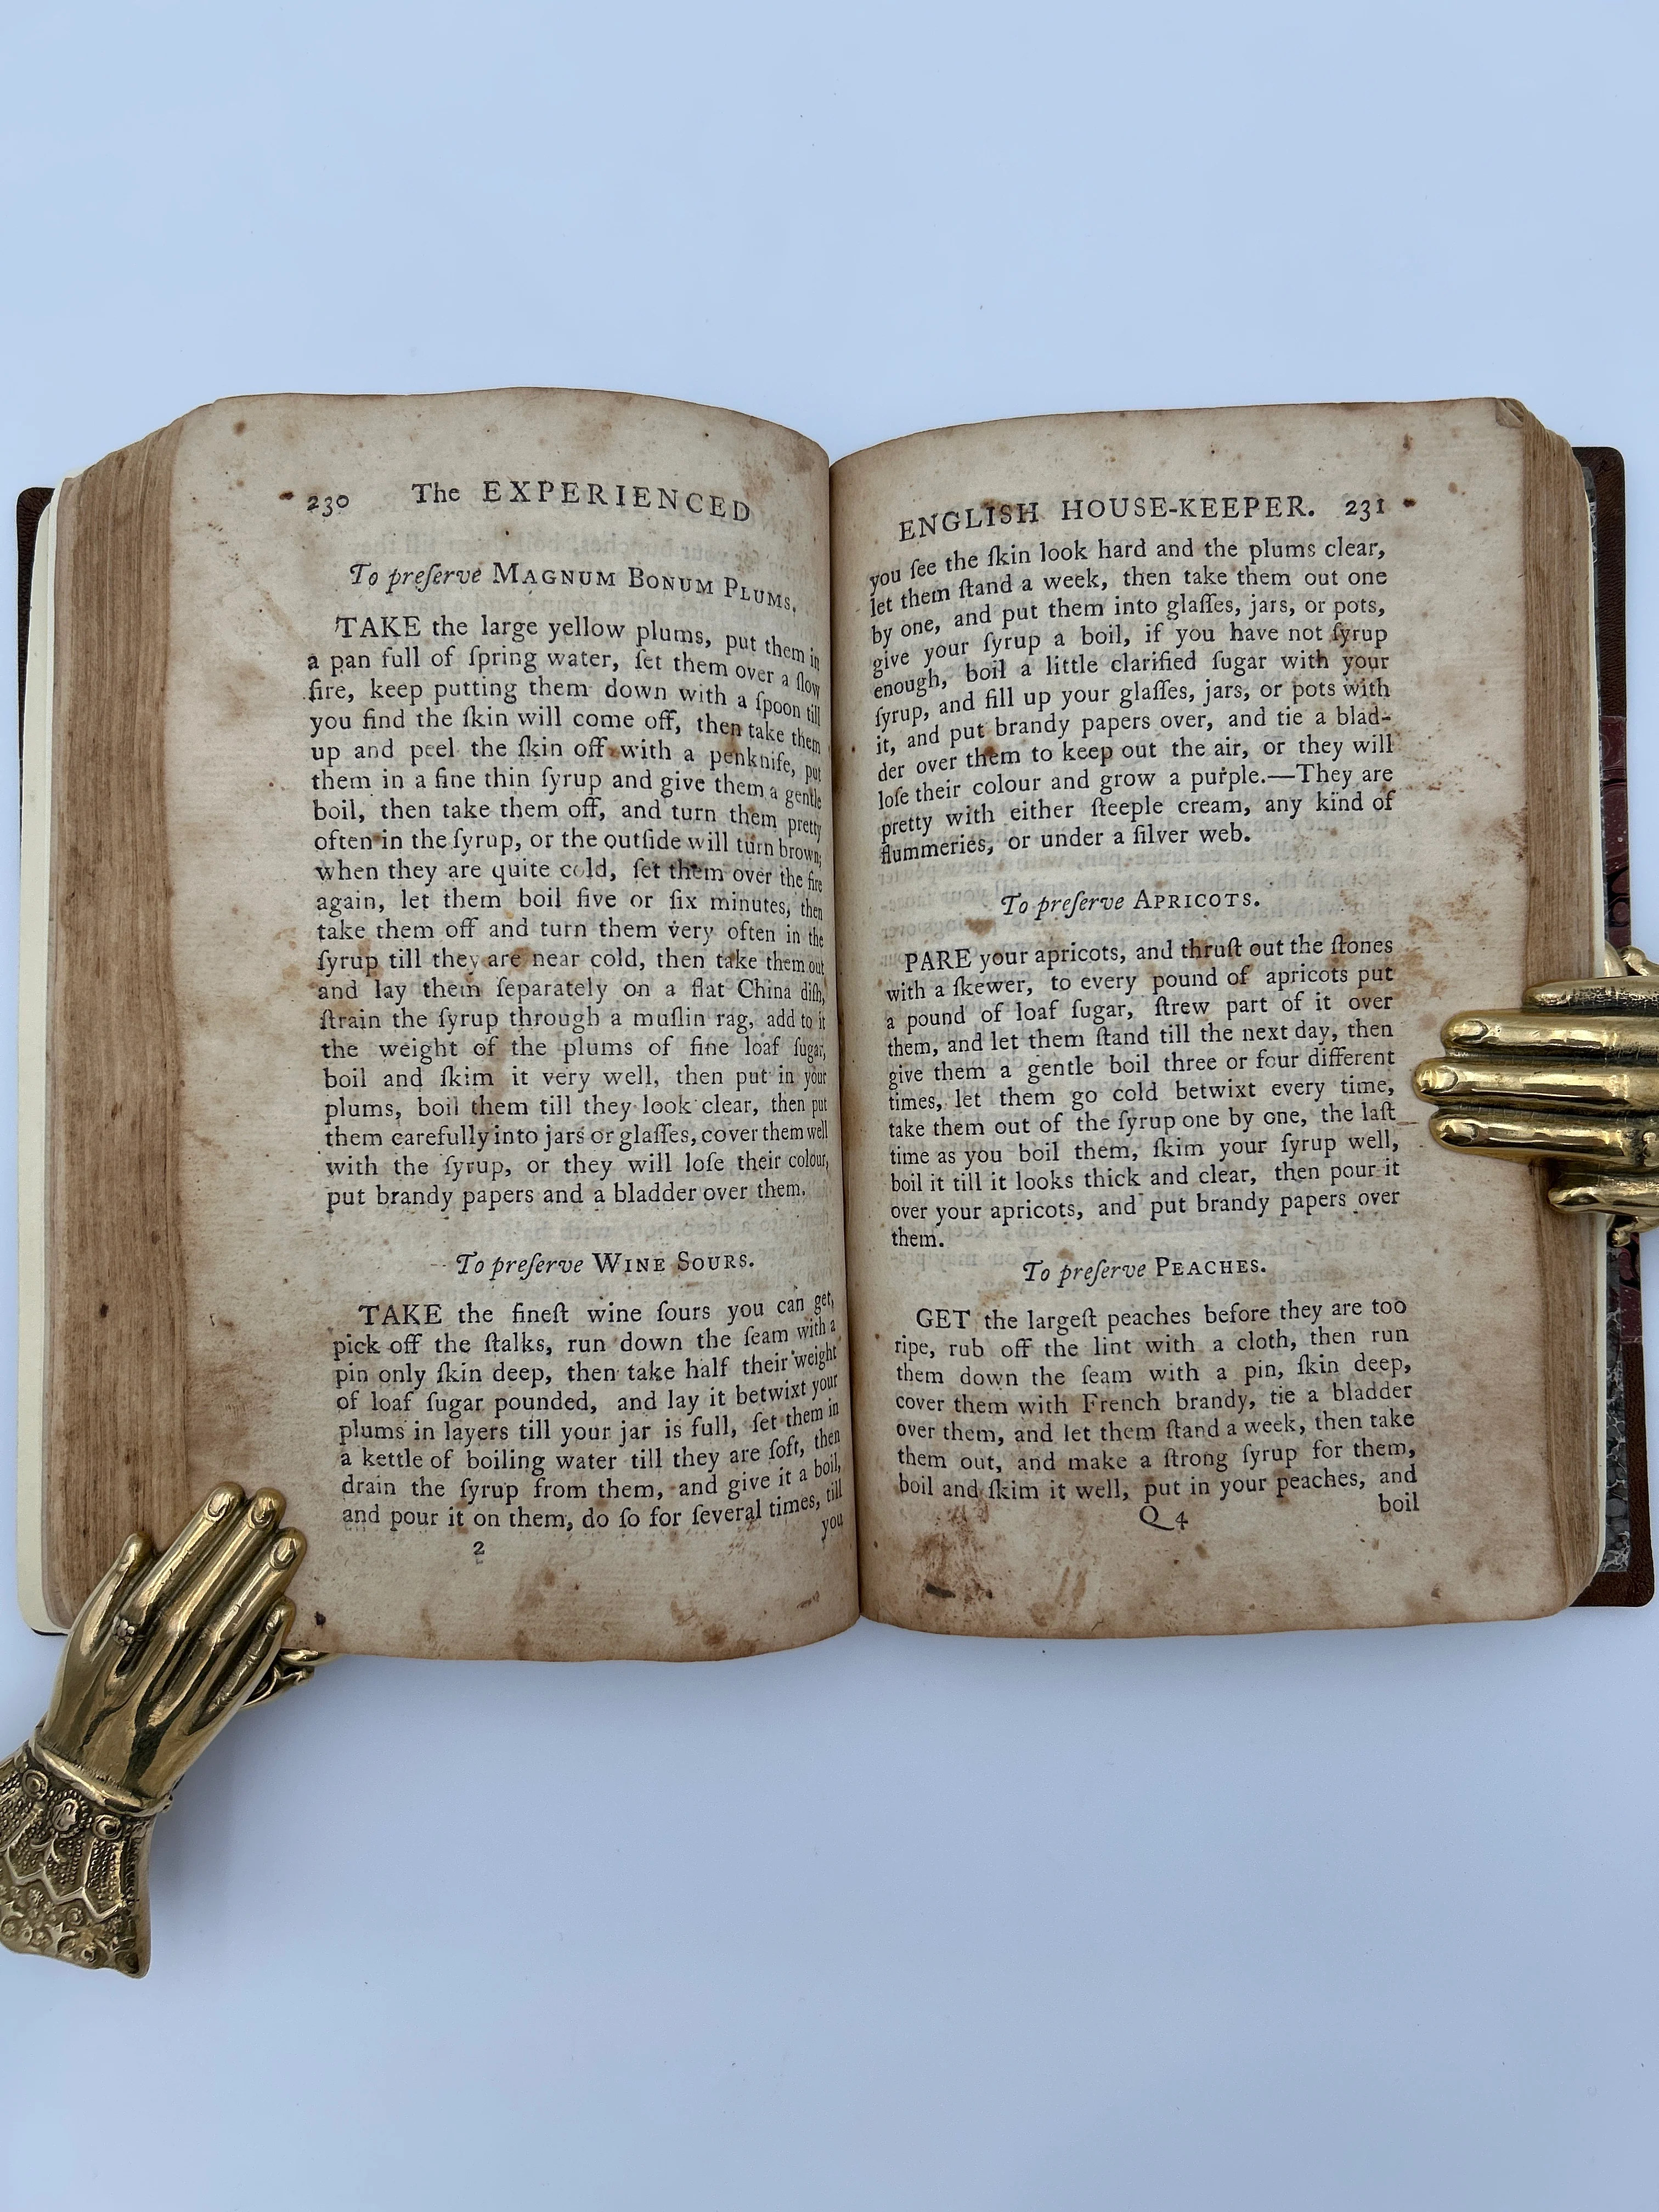 230 The EXPERIENCED
To preſerve MAGNUM BONUM PLUMS.
TAKE the large yellow plums, put them in
a pan full of ſpring water, ſet them over a ſlow
fire, keep putting them down with a ſpoon till
you find the ſkin will come off, then take them
up and peel the ſkin off with a penknife, put
them in a fine thin ſyrup and give them a gentle
boil, then take them off, and turn them pretty
often in the ſyrup, or the outſide will turn brown;
when they are quite cold, ſet them over the fire
again, let them boil five or ſix minutes, then
take them off and turn them very often in the
ſyrup till they are near cold, then take them out
and lay them ſeparately on a flat China diſh,
ſtrain the ſyrup through a muſlin rag, add to it
the weight of the plums of fine loaf ſugar,
boil and ſkim it very well, then put in your
plums, boil them till they look clear, then put
them carefully into jars or glaſſes, cover them well
with the ſyrup, or they will loſe their colour,
put brandy papers and a bladder over them.
To preſerve WINE SOURS.
TAKE the fineſt wine ſours you can get,
pick off the ſtalks, run down the ſeam with a
pin only ſkin deep, then take half their weight
of loaf ſugar pounded, and lay it betwixt your
plums in layers till your jar is full, ſet them in
a kettle of boiling water till they are ſoft, then
drain the ſyrup from them, and give it a boil,
and pour it on them, do ſo for ſeveral times, till
2 you
ENGLISH HOUSE-KEEPER. 231
you ſee the ſkin look hard and the plums clear,
let them ſtand a week, then take them out one
by one, and put them into glaſſes, jars, or pots,
give your ſyrup a boil, if you have not ſyrup
enough, boil a little clarified ſugar with your
ſyrup, and fill up your glaſſes, jars, or pots with
it, and put brandy papers over, and tie a blad-
der over them to keep out the air, or they will
loſe their colour and grow a purple.—They are
pretty with either ſteeple cream, any kind of
flummeries, or under a ſilver web.
To preſerve APRICOTS.
PARE your apricots, and thruſt out the ſtones
with a ſkewer, to every pound of apricots put
a pound of loaf ſugar, ſtrew part of it over
them, and let them ſtand till the next day, then
give them a gentle boil three or four different
times, let them go cold betwixt every time,
take them out of the ſyrup one by one, the laſt
time as you boil them, ſkim your ſyrup well,
boil it till it looks thick and clear, then pour it
over your apricots, and put brandy papers over
them.
To preſerve PEACHES.
GET the largeſt peaches before they are too
ripe, rub off the lint with a cloth, then run
them down the ſeam with a pin, ſkin deep,
cover them with French brandy, tie a bladder
over them, and let them ſtand a week, then take
them out, and make a ſtrong ſyrup for them,
boil and ſkim it well, put in your peaches, and
Q 4 boil